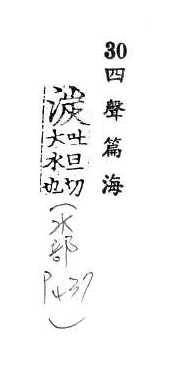 30 四聲篇海
湠 吐旦切
大水也 (水部 P437)